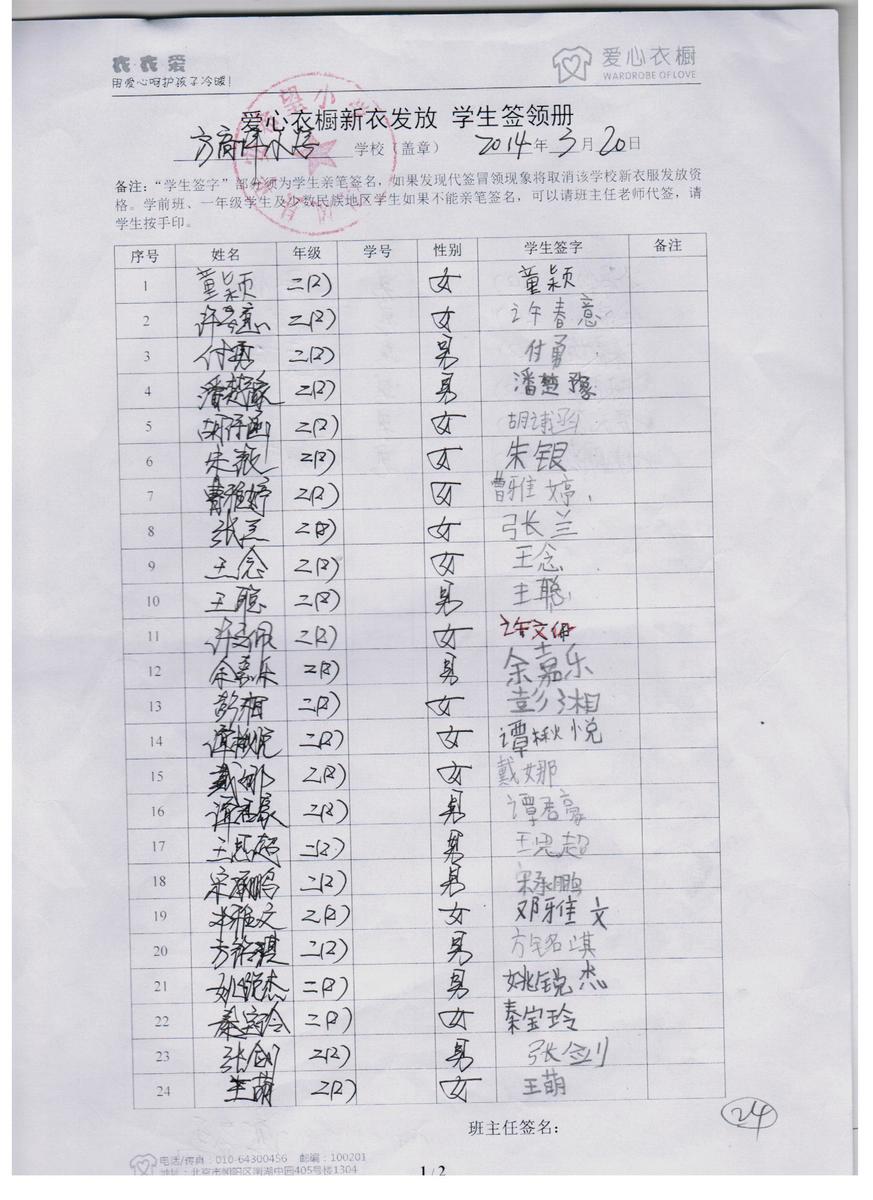 衣衣爱 爱心衣橱
用爱心呵护孩子冷暖! WARDROBE OF LOVE
爱心衣橱新衣发放 学生签领册
学校（盖章） 2014年3月20日
备注：“学生签字”部分须为学生亲笔签名，如果发现代签冒领现象将取消该学校新衣服发放资
格。学前班、一年级学生及少数民族地区学生如果不能亲笔签名，可以请班主任老师代签，请
学生按手印。
序号 姓名 年级 学号 性别 学生签字 备注
1 董颖 二(2) 女 董颖
2 许春意 二(2) 女 许春意
3 付勇 二(2) 男 付勇
4 潘楚豫 二(2) 男 潘楚豫
5 二(2) 女
6 二(2) 女 朱银
7 曹雅婷 二(2) 女 曹雅婷
8 张兰 二(2) 女 张兰
9 王念 二(2) 女 王念
10 王聪 二(2) 男 王聪
11 二(2) 女 许文佩
12 余嘉乐 二(2) 男 余嘉乐
13 彭湘 二(2) 女 彭湘
14 谭楸悦 二(2) 女 谭楸悦
15 戴娜 二(2) 女 戴娜
16 谭君豪 二(2) 男 谭君豪
17 王思超 二(2) 男 王思超
18 宋承鹏 二(2) 男 宋承鹏
19 邓雅文 二(2) 女 邓雅文
20 方铭淇 二(2) 男 方铭淇
21 姚锐杰 二(2) 男 姚锐杰
22 秦宝玲 二(2) 女 秦宝玲
23 张剑 二(2) 男 张剑
24 王萌 二(2) 女 王萌
24
班主任签名：
电话/传真：010-64300456 邮编：100201
地址：北京市朝阳区南湖中园405号楼1304
1 / 2